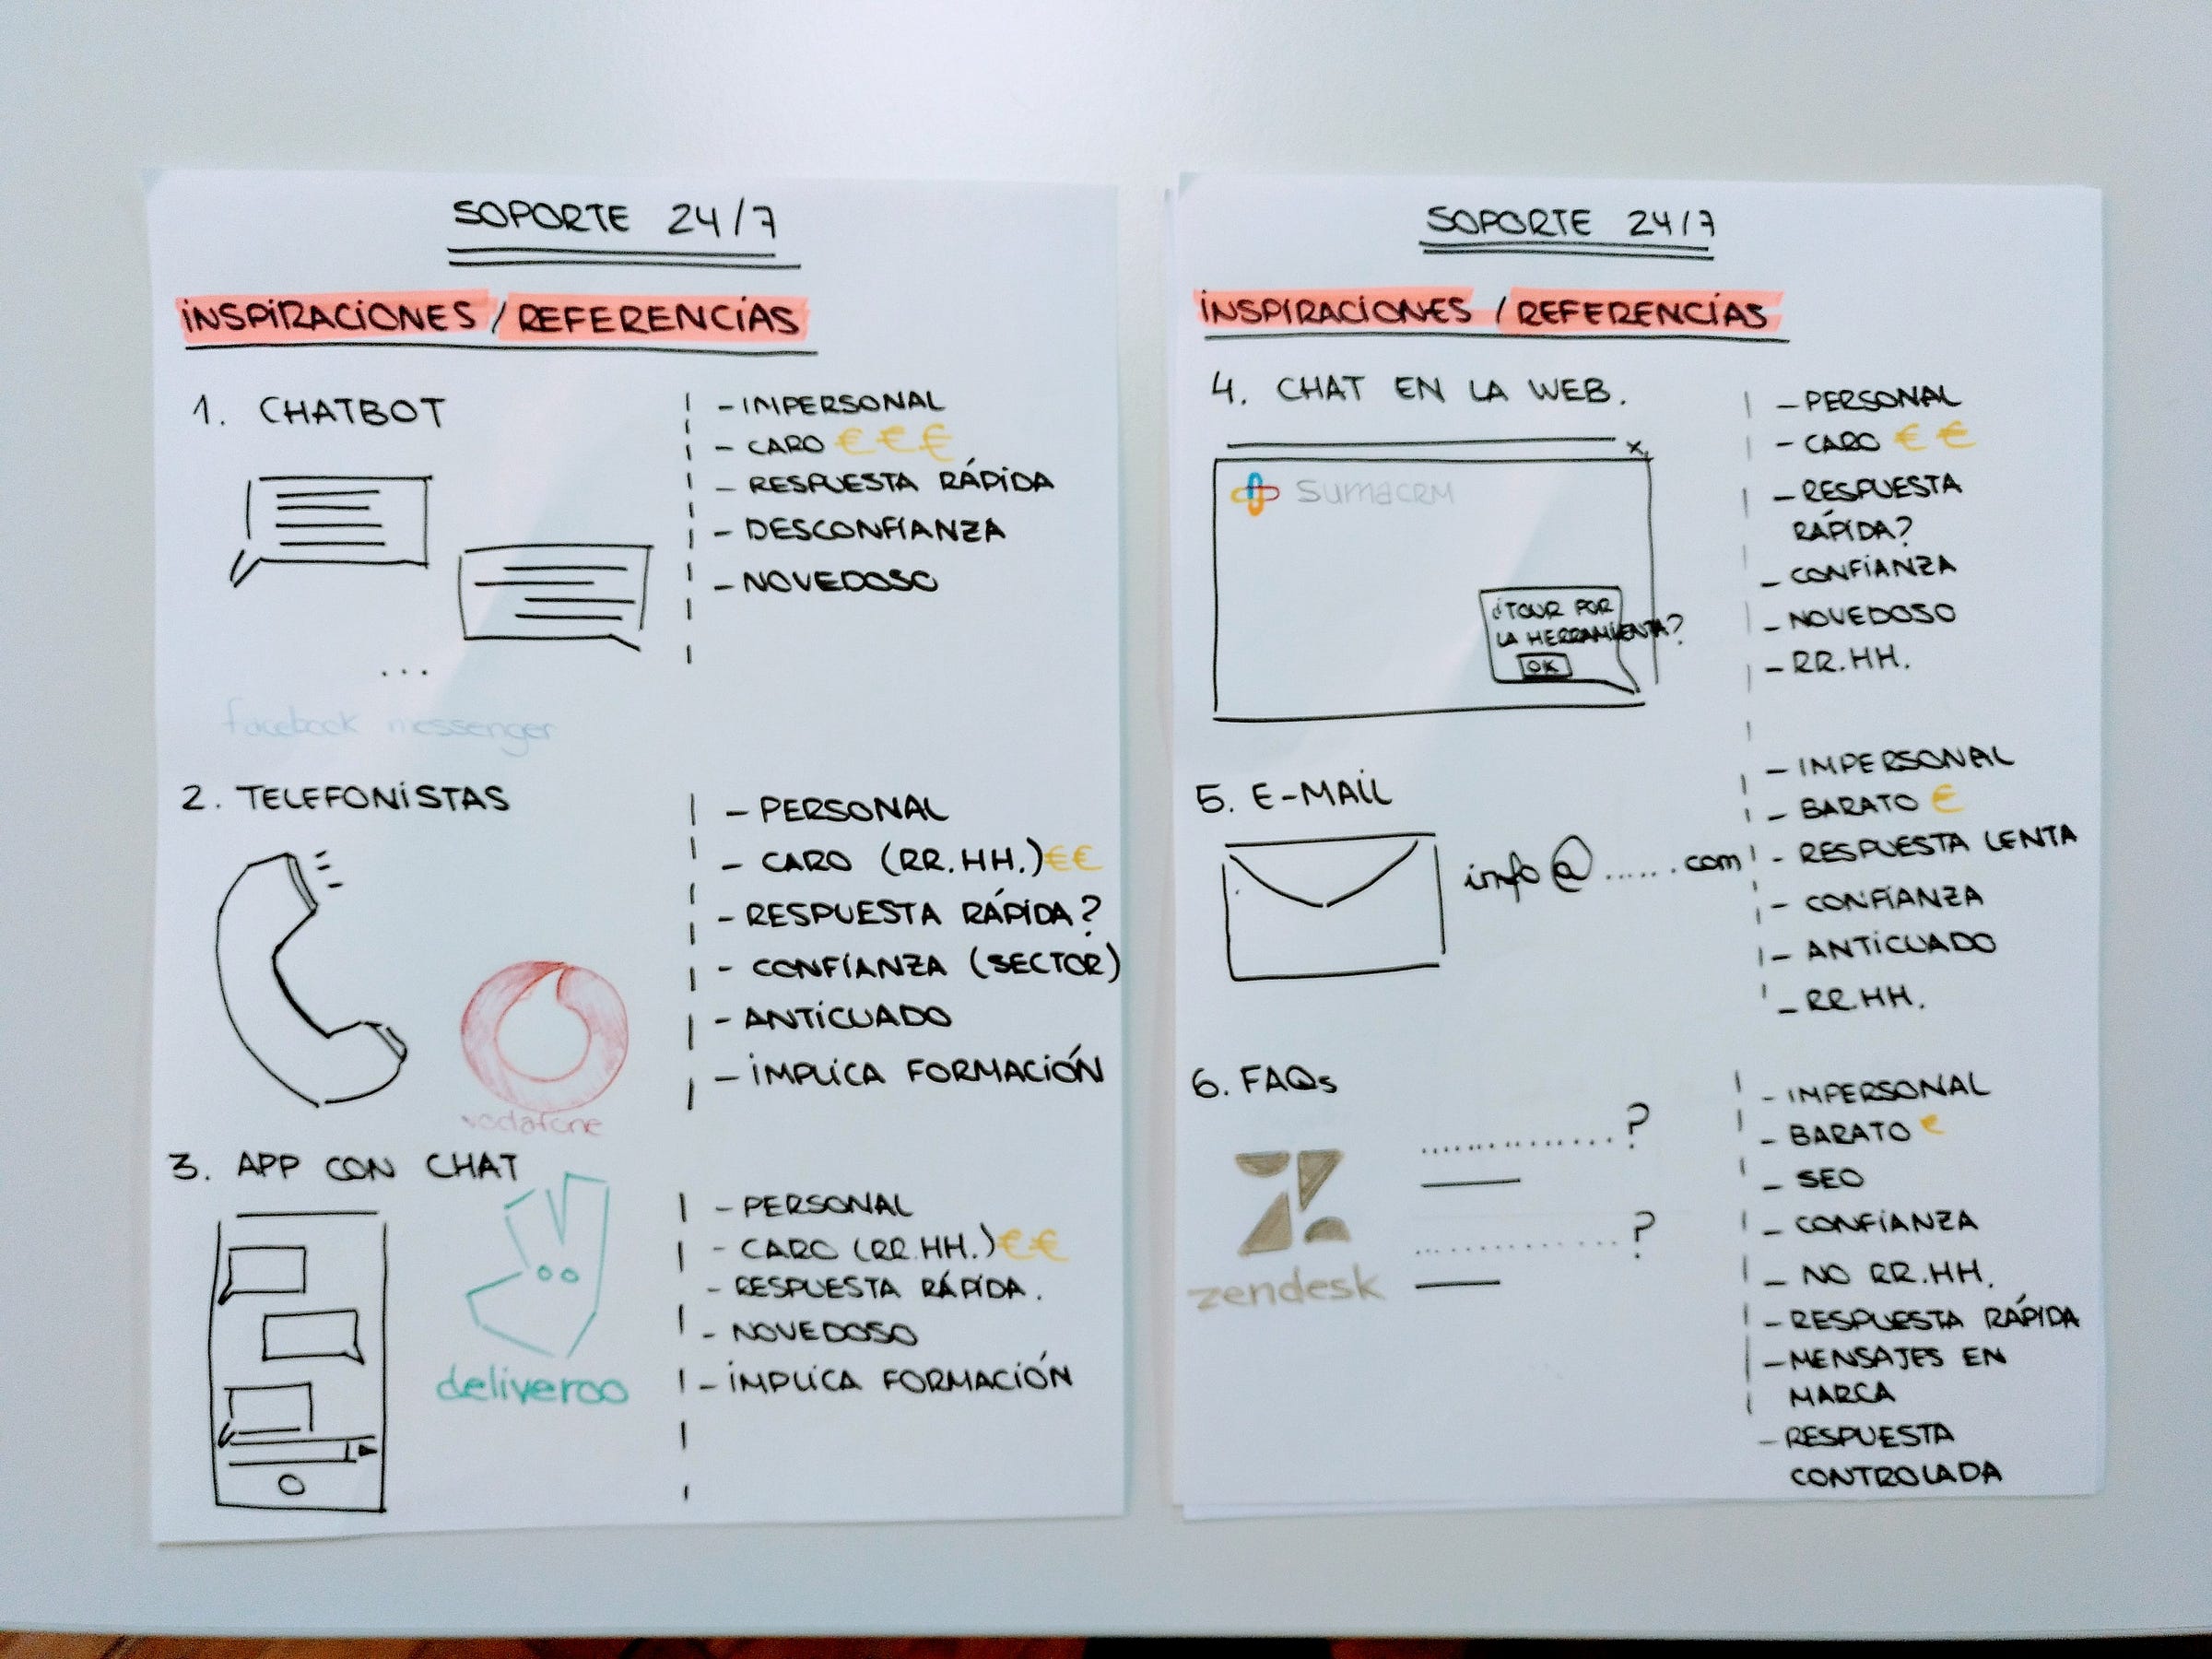 SOPORTE 24/7
INSPIRACIONES / REFERENCIAS
1. CHATBOT
- IMPERSONAL
- CARO € € €
- RESPUESTA RÁPIDA
- DESCONFIANZA
- NOVEDOSO
...
facebook messenger
2. TELEFONISTAS
- PERSONAL
- CARO (RR.HH.) €€
- RESPUESTA RÁPIDA?
- CONFIANZA (SECTOR)
- ANTICUADO
- IMPLICA FORMACIÓN
vodafone
3. APP CON CHAT
- PERSONAL
- CARO (RR.HH.) €€
- RESPUESTA RÁPIDA.
- NOVEDOSO
- IMPLICA FORMACIÓN
deliveroo
SOPORTE 24/7
INSPIRACIONES / REFERENCIAS
4. CHAT EN LA WEB.
x
SUMACRM
¿TOUR POR
LA HERRAMIENTA?
OK
- PERSONAL
- CARO € €
- RESPUESTA
RÁPIDA?
- CONFIANZA
- NOVEDOSO
- RR.HH.
5. E-MAIL
info@......com
- IMPERSONAL
- BARATO €
- RESPUESTA LENTA
- CONFIANZA
- ANTICUADO
- RR.HH.
6. FAQs
..............?
..............?
zendesk
- IMPERSONAL
- BARATO €
- SEO
- CONFIANZA
- NO RR.HH.
- RESPUESTA RÁPIDA
- MENSAJES EN
MARCA
- RESPUESTA
CONTROLADA